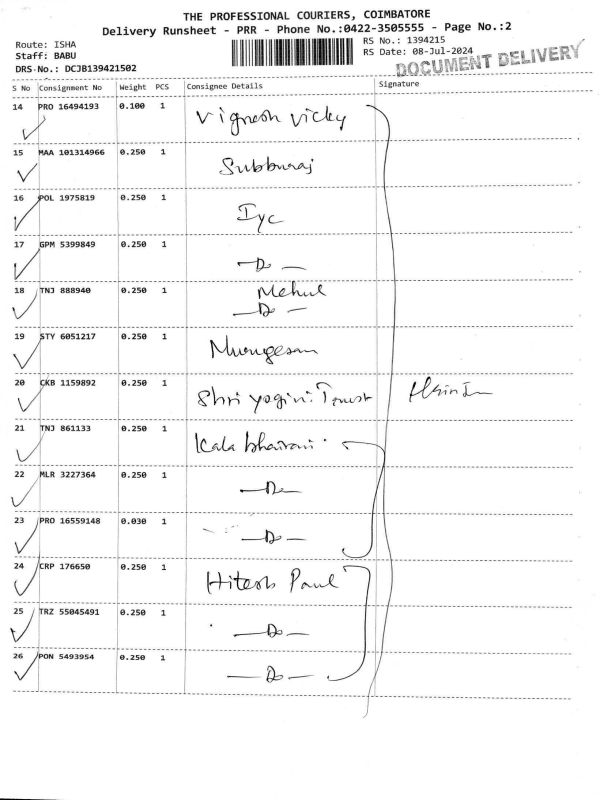 THE PROFESSIONAL COURIERS, COIMBATORE
Delivery Runsheet - PRR - Phone No.:0422-3505555 - Page No.:2
Route: ISHA
Staff: BABU
DRS-No.: DCJB139421502
RS No.: 1394215
RS Date: 08-Jul-2024
DOCUMENT DELIVERY
S No Consignment No Weight PCS Consignee Details Signature
14 PRO 16494193 0.100 1 Vignesh Vicky
15 MAA 101314966 0.250 1 Subburaj
16 POL 1975819 0.250 1 Iyc
17 GPM 5399849 0.250 1 —Do—
18 TNJ 888940 0.250 1 Mehul
—Do—
19 STY 6051217 0.250 1 Murugesan
20 CKB 1159892 0.250 1 Shri Yogini Trust
21 TNJ 861133 0.250 1 Kala bhairavi
22 MLR 3227364 0.250 1 —Do—
23 PRO 16559148 0.030 1 —Do—
24 CRP 176650 0.250 1 Hitesh Paul
25 TRZ 55045491 0.250 1 —Do—
26 PON 5493954 0.250 1 —Do—